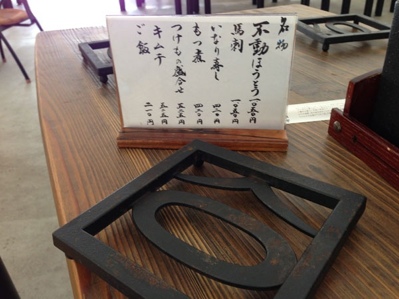 名物
不動ほうとう 一〇五〇円
馬刺 一〇五〇円
いなり寿し 四二〇円
もつ煮 四二〇円
つけもの盛合せ 三一五円
キムチ 三一五円
ご飯 二一〇円